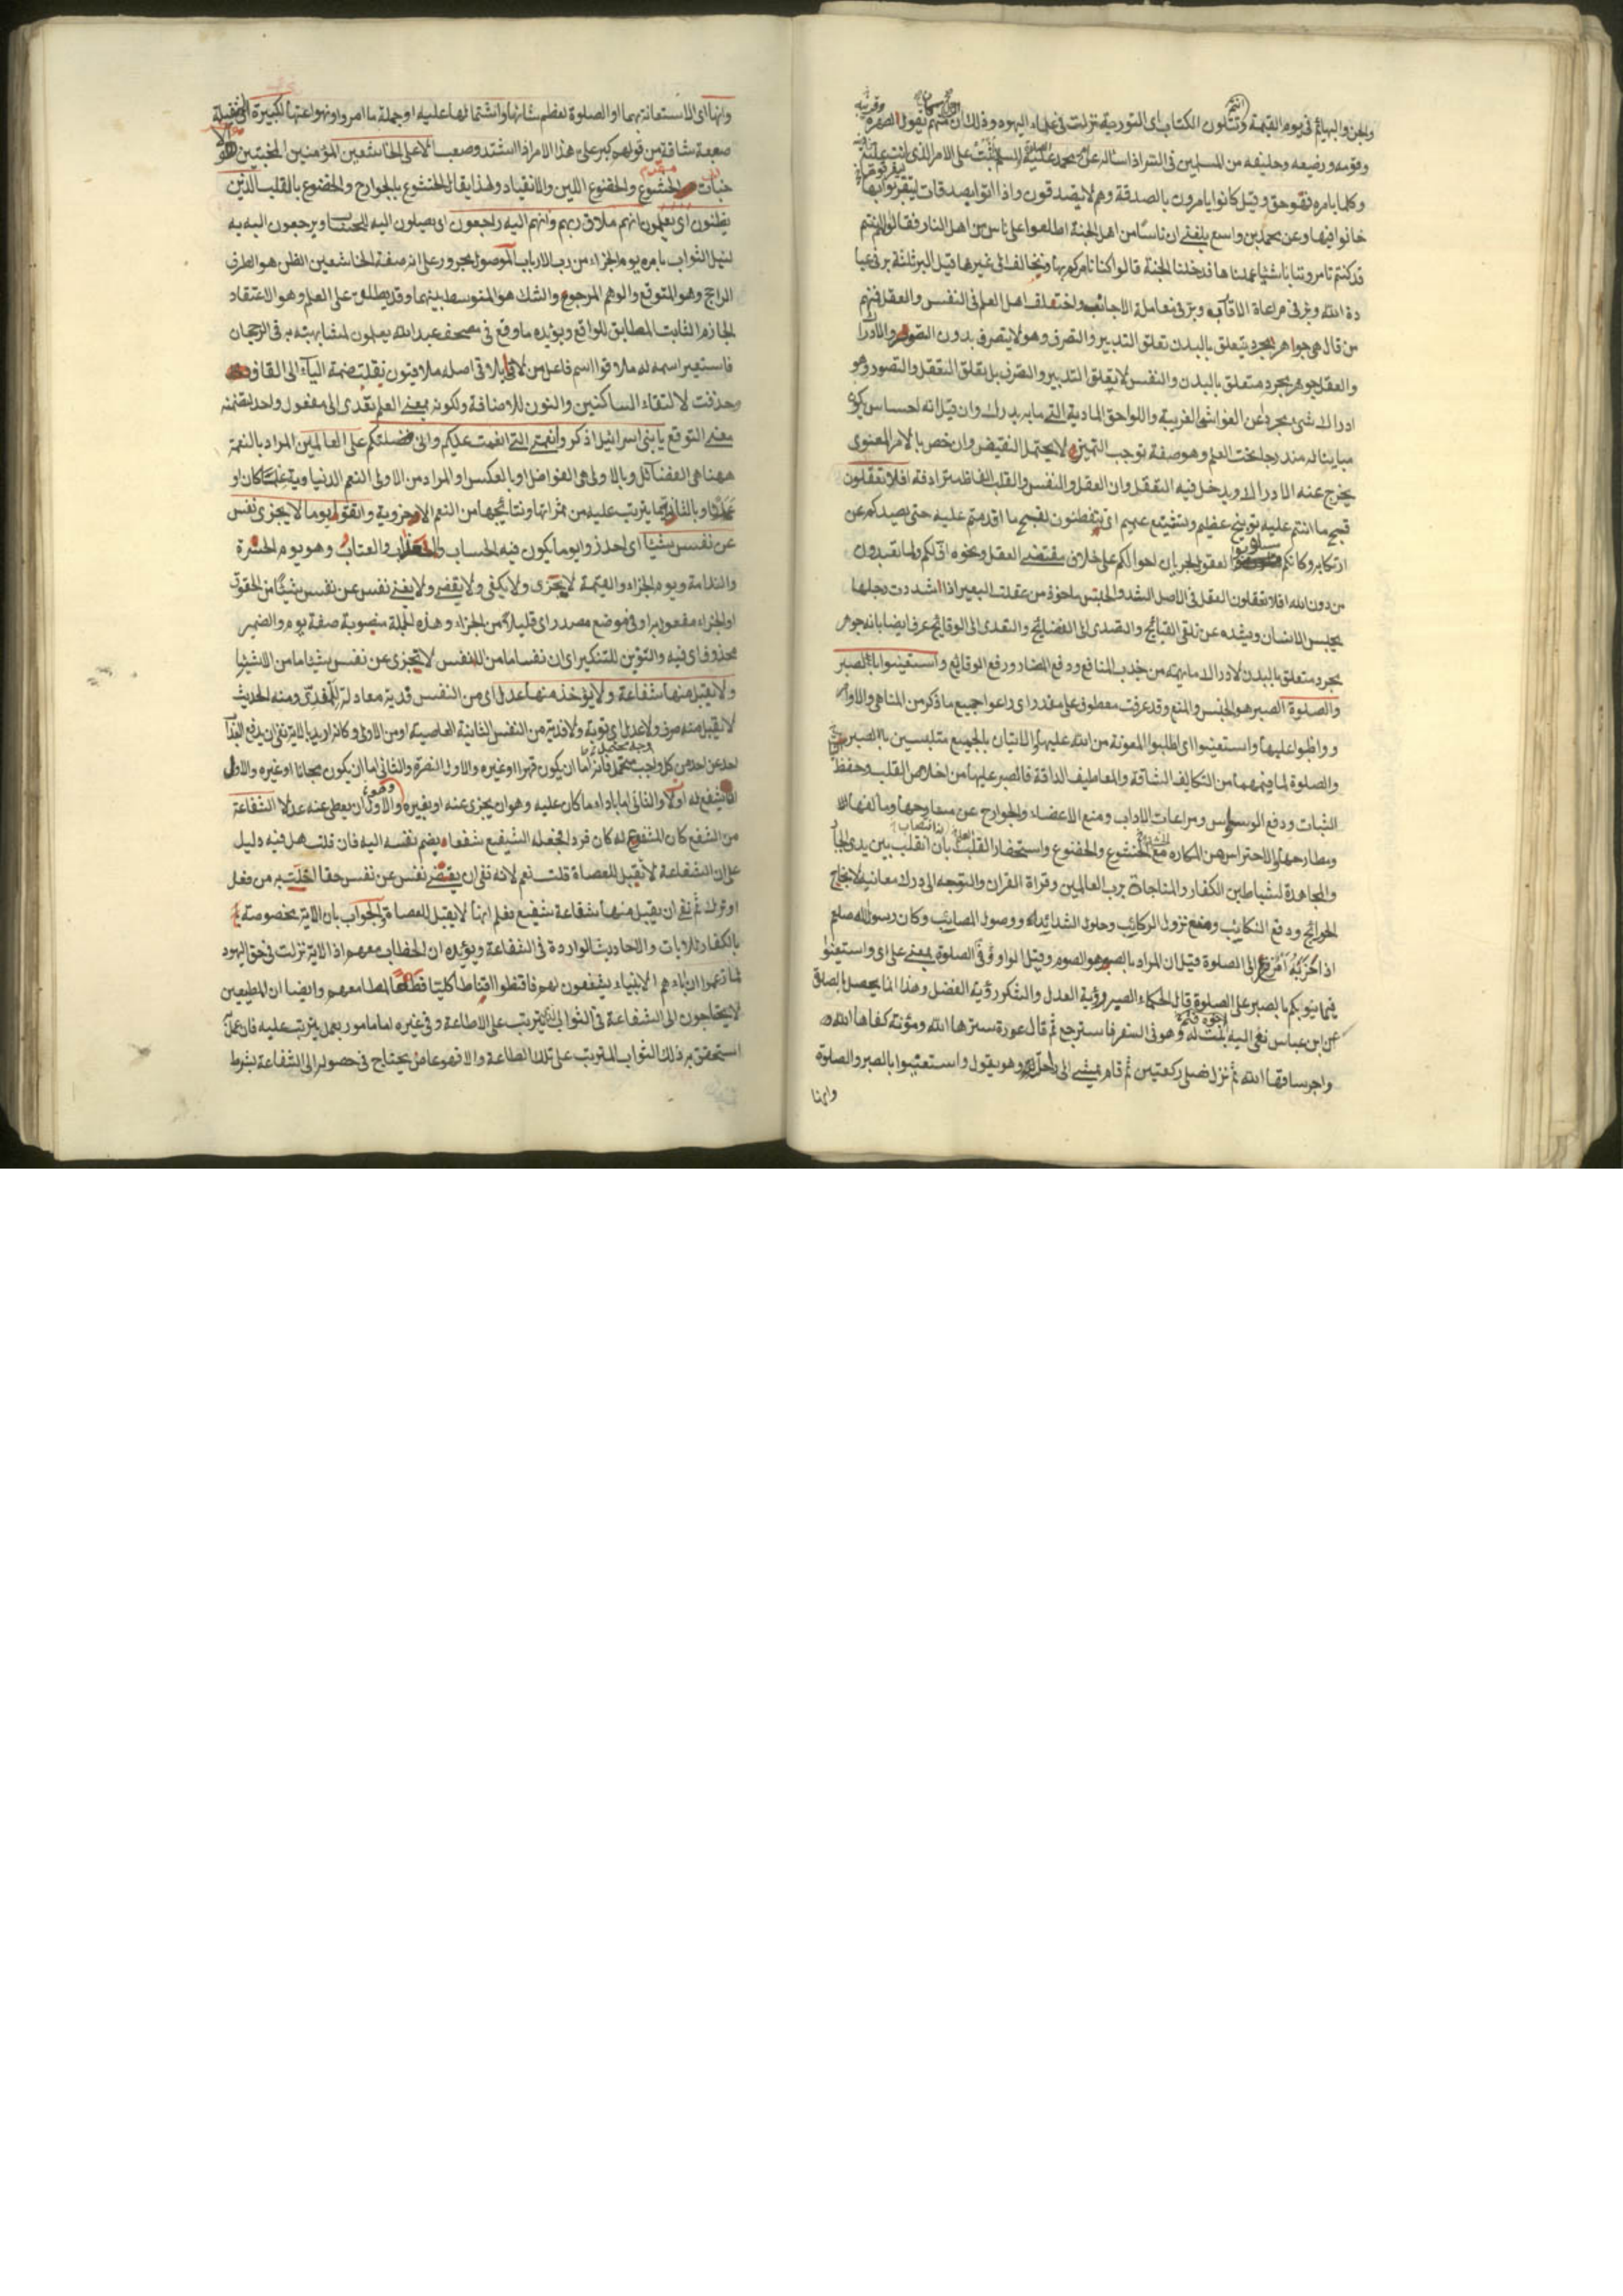 والجن والبهائم في يوم القيمة وانتم تتلون الكتاب اى التورية نزلت في علماء اليهود وذلك ان
وقومه ورضيعه وحليفه من المسلمين في السر اذا ساله عن محمد عليه السلم اثبت على الامر الذى انت عليه
وكلما يامره فهو حق وقيل كانوا يامرون بالصدقة وهم لا يصدقون واذا اتوا بصدقات ليفرقوها
خانوا فيها وعن محمد بن واسع بلغنى ان ناسا من اهل الجنة اطلعوا على ناس من اهل النار فقالوا لهم
قد كنتم تامروننا باشياء عملناها فدخلنا الجنة قالوا كنا نامركم بها ونخالف الى غيرها قيل البر ثلثة بر في عبا
دة الله وبر في مراعاة الاقارب وبر في معاملة الاجانب واختلف اهل العلم في النفس والعقل فمنهم
من قال هى جواهر مجرد يتعلق بالبدن تعلق التدبير والتصرف وهو لا يتصرف بدون
والعقل جوهر مجرد متعلق بالبدن والنفس لا يتعلق التدبير والتصرف بل تعلق التعقل والتصور وهو
ادراك شئ مجرد عن الغواشى الغريبة واللواحق المادية التى ما به يدرك وان قيل انه احساس
مندرجا تحت العلم وهو صفة توجب التميز لا يحتمل النقيض وان خص بالامر المعنوى
يخرج عنه الادراك ويدخل فيه التعقل وان العقل والنفس والقلب الفاظ مترادفة افلا تعقلون
قبح ما انتم عليه توبيخ عظيم وتشنيع عميم اى تتفطنون لقبح ما اقدمتم عليه حتى يصدكم عن
ارتكابه وكانكم العقول لجريان احوالكم على خلاف مقتضى العقل ونحوه اف لكم ولما تعبدون
من دون الله افلا تعقلون العقل في الاصل الشد والحبس ماخوذ من عقلت البعير اذا شددت رجلها
يحبس الانسان ويشده عن تلقى القبائح والتصدى الى الفضائح والتعدى الى الوقائح عرف ايضا بانه جوهر
مجرد متعلق بالبدن لادراك ما يهمه من جذب المنافع ودفع المضار ورفع الوقائع واستعينوا بالصبر
والصلوة الصبر هو الحبس والمنع وقد عرفت معطوف على مقدر اى راعوا جميع ما ذكر من المناهى والاوامر
وواظبوا عليها واستعينوا اى اطلبوا المعونة من الله عليها والاتيان بالجميع متلبسين بالصبر
والصلوة لما فيهما من التكاليف الشاقة فالصبر عليها من اخلاص القلب وحفظ
الثبات ودفع الوسواس ومراعات الاداب ومنع الاعضاء والجوارح عن
والاحتراس من المكاره مع الخشوع والخضوع واستحضار القلب بين يدى
والمجاهدة لشياطين الكفار والمناجاة برب العالمين وقراة القران والتوجه الى درك معانيه لانجاح
الحوائج ودفع النكائب ومنع نزول الركائب وحلول الشدائد ووصول المصائب وكان رسول الله صلعم
اذا حزبه امر فزع الى الصلوة قيل ان المراد بالصبر هو الصوم وقيل الواو في الصلوة بمعنى على اى واستعينوا
فيما ينوبكم بالصبر على الصلوة قال الحكماء الصبر رؤية العدل والشكور رؤية الفضل وهذا انما يحصل بالصلوة
عن ابن عباس نعى اليه بنت له وهو في السفر فاسترجع ثم قال عورة سترها الله ومؤنة كفاها الله
واجر ساقها الله ثم نزل فصلى ركعتين ثم قام يمشى الى راحلته وهو يقول واستعينوا بالصبر والصلوة
وانها
وانها اى الاستعانة بهما او الصلوة لعظم شانها واشتمالها عليه او جملة ما امروا ونهوا عنها لكبيرة اى ثقيلة
صعبة شاقة من قولهم كبر على هذا الامر اذا اشتد وصعب الا على الخاشعين المؤمنين المخبتين
الخشوع والخضوع اللين والانقياد ولهذا يقال الخشوع بالجوارح والخضوع بالقلب الذين
يظنون اى يعلمون انهم ملاقوا ربهم وانهم اليه راجعون اى يصلون اليه ويرجعون اليه
لنيل الثواب بامره يوم الجزاء من رب الارباب الموصول مجرور على انه صفة الخاشعين الظن هو الطرف
الراجح وهو المتوقع والوهم المرجوع والشك هو المتوسط بينهما وقد يطلق على العلم وهو الاعتقاد
الجازم الثابت المطابق للواقع ويؤيده ما وقع في مصحف عبد الله يعلمون لمشابهته به في الرجحان
فاستعير اسمه له ملاقوا اسم فاعل من لاقى يلاقى اصله ملاقيون نقلت ضمة الياء الى القاف
وحذفت لالتقاء الساكنين والنون للاضافة ولكونه بمعنى العلم تعدى الى مفعول واحد لتضمنه
معنى التوقع يا بنى اسرائيل اذكروا نعمتى التى انعمت عليكم وانى فضلتكم على العالمين المراد بالنعمة
ههنا هى الفضائل وبالاولى هى الفواضل او بالعكس او المراد من الاولى النعم الدنياوية علما كان او
عملا وبالثانية ما يترتب عليه من ثمراتها ونتائجها من النعم الاخروية واتقوا يوما لا يجزى نفس
عن نفس شيئا اى احذروا يوما يكون فيه الحساب والعتاب وهو يوم الحسرة
والندامة ويوم الجزاء والقيمة لا يجزى ولا يكفى ولا يقضى ولا يغنى نفس عن نفس شيئا من الحقوق
او الجزاء مفعول به او في موضع مصدر اى قليلا من الجزاء وهذه الجملة منصوبة صفة يوم والضمير
محذوف اى فيه والتنوين للتنكير اى ان نفسا ما من النفس لا تجزى عن نفس شيئا ما من الاشياء
ولا يقبل منها شفاعة ولا يؤخذ منها عدل اى من النفس فدية معادلة للمفدى ومنه الحديث
لا يقبل منه صرف ولا عدل اى توبة ولا فدية من النفس الثانية العاصية او من الاولى وكانه اريد بالاية نفى ان يدفع العذاب
احد عن احد من كل وجه محتمل فانه اما ان يكون قهرا او غيره والاول النصرة والثانى اما ان يكون مجانا او غيره والاول
ان يشفع له اولا والثانى اما باداء ما كان عليه وهو ان يجزى عنه او بغيره وهو ان يعطى عنه عدلا الشفاعة
من الشفع كان المشفوع له كان فردا فجعله الشفيع شفعا بضم نفسه اليه فان قلت هل فيه دليل
على ان الشفاعة لا تقبل للعصاة قلت نعم لانه نفى ان يقضى نفس عن نفس حقا اخلت به من فعل
او ترك ثم نفى ان يقبل منها شفاعة شفيع فعلم انها لا يقبل للعصاة والجواب بان الاية مخصوصة
بالكفار للايات والاحاديث الواردة في الشفاعة ويؤيده ان الخطاب معهم اذ الاية نزلت في حق اليهود
لما زعموا ان اباءهم الانبياء يشفعون لهم فاقنطوا اقناطا كليا قطعا لمطامعهم وايضا ان المطيعين
لا يحتاجون الى الشفاعة في الثواب الذى يترتب على الاطاعة وفي غيره اما مامور بعمل يترتب عليه فان عمل
استحقق به ذلك الثواب المترتب على تلك الطاعة والا فهو عاص يحتاج في حصوله الى الشفاعة بشرط